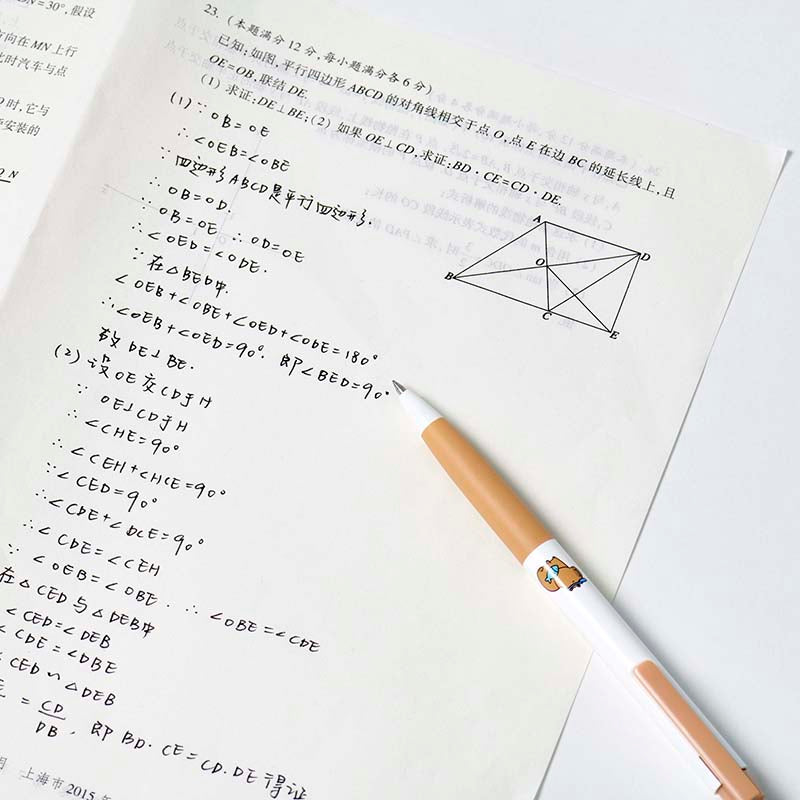 N=30°,假设
方向在 MN 上行
此时汽车与点
时,它与
安装的
23. (本题满分 12 分,每小题满分各 6 分)
已知:如图,平行四边形 ABCD 的对角线相交于点 O,点 E 在边 BC 的延长线上,且
OE=OB,联结 DE.
(1) 求证:DE⊥BE;(2) 如果 OE⊥CD,求证:BD·CE=CD·DE.
A
D
O
B
C
E
(1) ∵ OB=OE
∴ ∠OEB=∠OBE
∵ 四边形ABCD是平行四边形.
∴ OB=OD.
∵ OB=OE ∴ OD=OE
∴ ∠OED=∠ODE.
∵ 在△BED中.
∠OEB+∠OBE+∠OED+∠ODE=180°
∴ ∠OEB+∠OED=90°. 即∠BED=90°.
故 DE⊥BE.
(2) 设 OE 交 CD于H
∵ OE⊥CD于H
∴ ∠CHE=90°
∴ ∠CEH+∠HCE=90°
∵ ∠CED=90°
∴ ∠CDE+∠DCE=90°
∴ ∠CDE=∠CEH
∵ ∠OEB=∠OBE. ∴ ∠OBE=∠CDE
在△CED与△DEB中
∠CED=∠DEB
∠CDE=∠DBE
CED∽△DEB
= CD/DB, 即 BD·CE=CD·DE 得证
上海市 2015